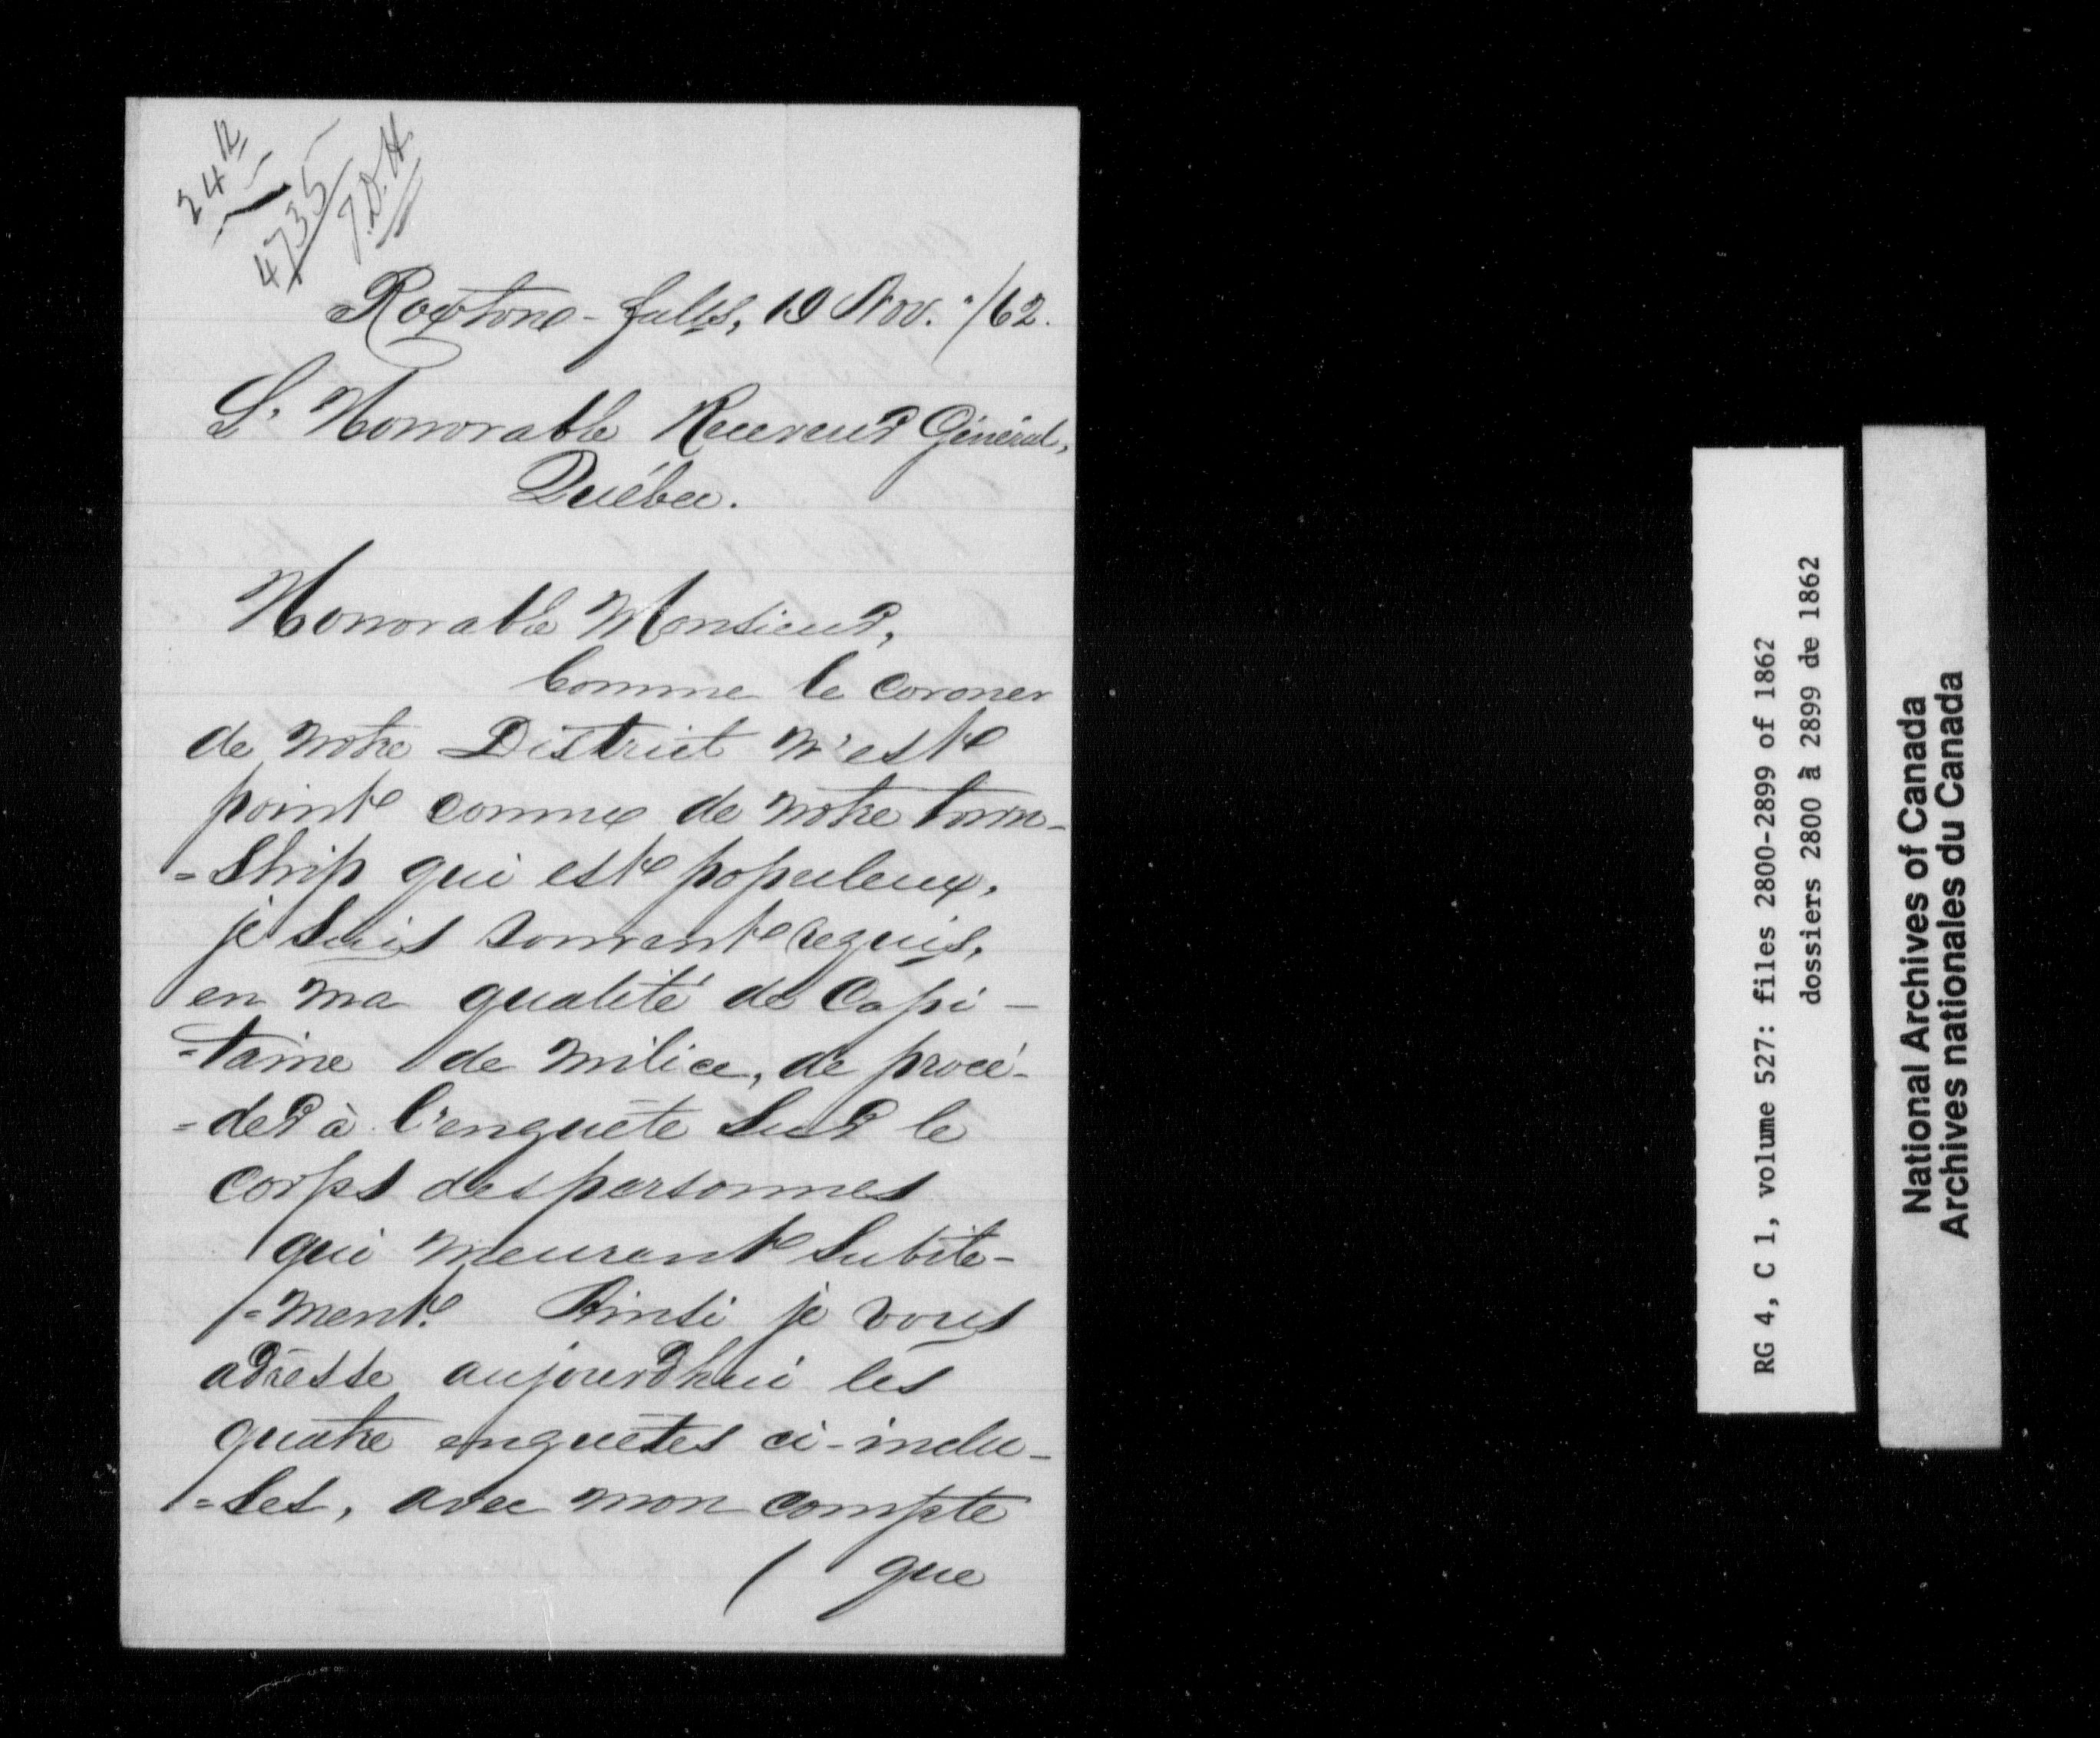 24
4735
Roxtone-falls, 19 Nov. /62.
L'Honnorable Receveur Général,
Québec.
Honnorable Monsieur,
Comme le coroner
de notre District n'est
point connu de notre town-
-Ship qui est populeux,
je suis souvent requis,
en ma qualité de Capi-
-taine de milice, de procé-
-der à l'enquête sur le
corps des personnes
qui meurent subite-
-ment. Ainsi je vous
adresse aujourdhui les
quatre enquêtes ci-inclu-
-ses, avec mon compte
que
RG 4, C 1, volume 527: files 2800-2899 of 1862
dossiers 2800 à 2899 de 1862
National Archives of Canada
Archives nationales du Canada